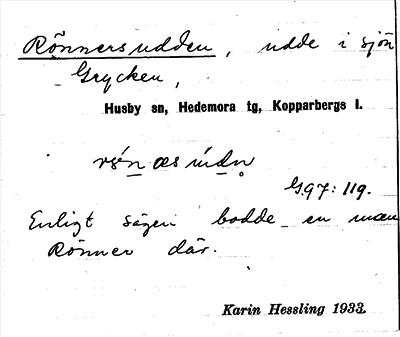 Rönnersudden, udde i sjön
Grycken,
Husby sn, Hedemora tg, Kopparbergs l.
G97: 119.
Enligt sägen bodde en man
Rönner där.
Karin Hessling 1933.